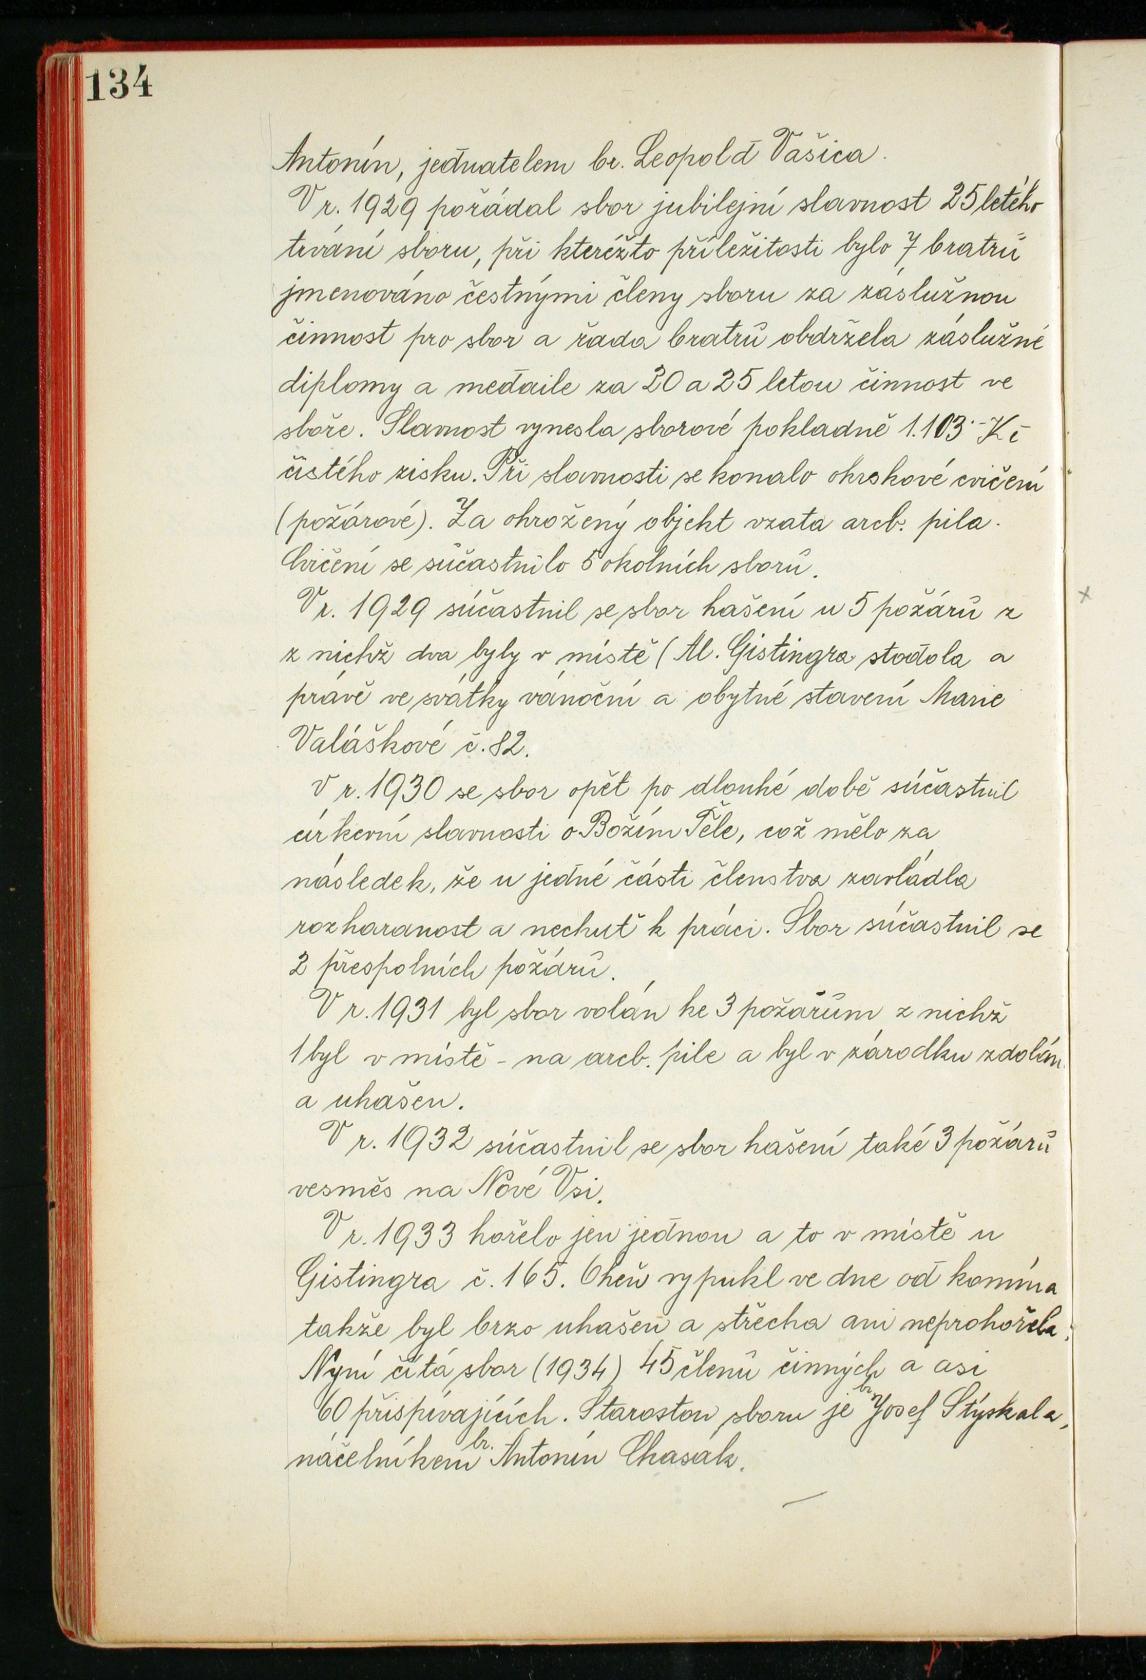 134
Antonín, jednatelem br. Leopold Vašica.
V r. 1929 pořádal sbor jubilejní slavnost 25letého
trvání sboru, při kteréžto příležitosti bylo 7 bratrů
jmenováno čestnými členy sboru za záslužnou
činnost pro sbor a řada bratrů obdržela záslužné
diplomy a medaile za 20 a 25 letou činnost ve
sboře. Slavnost vynesla sborové pokladně 1.103·- Kč
čistého zisku. Při slavnosti se konalo okrskové cvičení
(požárové). Za ohrožený objekt vzata arcb. pila.
Cvičení se súčastnilo 5 okolních sborů.
V r. 1929 súčastnil se sbor hašení u 5 požárů z
z nichž dva byly v místě (Al. Gistingra stodola a
právě ve svátky vánoční a obytné stavení Marie
Valáškové č. 82.
V r. 1930 se sbor opět po dlouhé době súčastnil
církevní slavnosti o Božím Těle, což mělo za
následek, že u jedné části členstva zavládla
rozharanost a nechuť k práci. Sbor súčastnil se
2 přespolních požárů.
V r. 1931 byl sbor volán ke 3 požárům z nichž
1 byl v místě - na arcb. pile a byl v zárodku zdolán
a uhašen.
V r. 1932 súčastnil se sbor hašení také 3 požárů
vesměs na Nové Vsi.
V r. 1933 hořelo jen jednou a to v místě u
Gistingra č. 165. Oheň vypukl ve dne od komína
takže byl brzo uhašen a střecha ani neprohořela.
Nyní čítá sbor (1934) 45 členů činných a asi
60 přispívajících. Starostou sboru je br. Josef Stýskala,
náčelníkem br. Antonín Chasák.